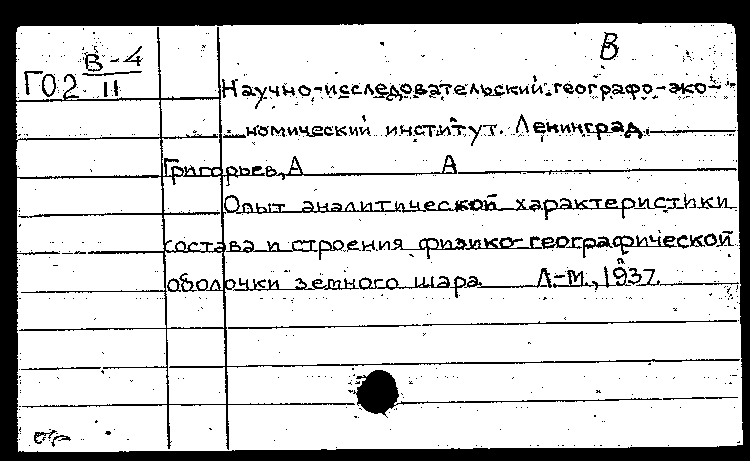 В
В-4
ГО2 II
Научно-исследовательский географо-эко-
номический институт. Ленинград.
Григорьев, А А
Опыт аналитической характеристики
состава и строения физико-географической
оболочки земного шара. Л.-М., 1937.